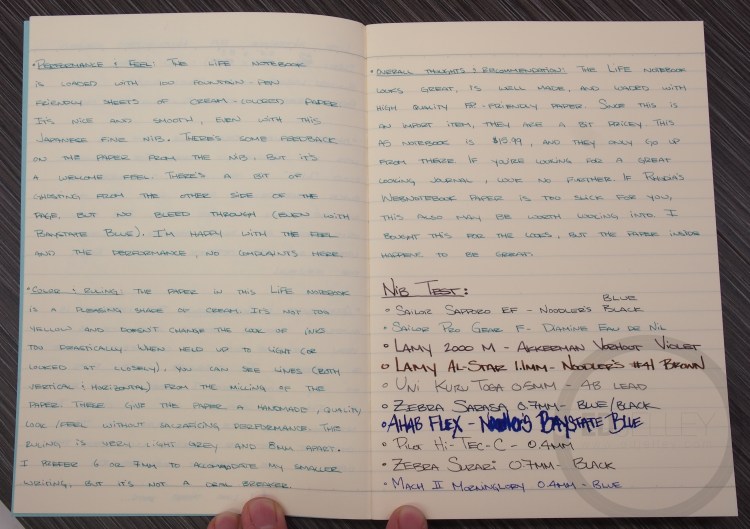 • Performance & Feel: The Life notebook
is loaded with 100 fountain pen
friendly sheets of cream-colored paper.
It's nice and smooth, even with this
Japanese fine nib. There's some feedback
on the paper from the nib. But it's
a welcome feel. There's a bit of
ghosting from the other side of the
page, but no bleed through (even with
Baystate Blue). I'm happy with the feel
and the performance, no complaints here.
• Color & Ruling: The paper in this Life notebook
is a pleasing shade of cream. It's not too
yellow and doesn't change the look of inks
too drastically. When held up to light (or
looked at closely), you can see lines (both
vertical & horizontal) from the milling of the
paper. These give the paper a handmade, quality
look/feel without sacrificing performance. The
ruling is very light grey and 8mm apart.
I prefer 6 or 7mm to accommodate my smaller
writing, but it's not a deal breaker.
• Overall thoughts & recommendation: The Life notebook
looks great, is well made, and loaded with
high quality FP-friendly paper. Since this is
an import item, they are a bit pricey. This
A5 notebook is $15.99, and they only go up
from there. If you're looking for a great
looking journal, look no further. If Rhodia's
Webnotebook paper is too slick for you,
this also may be worth looking into. I
bought this for the looks, but the paper inside
happens to be great.
Nib Test:
• Sailor Sapporo EF - Noodler's Blue Black
• Sailor Pro Gear F - Diamine Eau de Nil
• Lamy 2000 M - Akkerman Voorhout Violet
• Lamy Al-Star 1.1mm - Noodler's #41 Brown
• Uni Kuru Toga 0.5mm - 4B lead
• Zebra Sarasa 0.7mm - Blue/Black
• Ahab Flex - Noodler's Baystate Blue
• Pilot Hi-Tec-C - 0.4mm
• Zebra Surari 0.7mm - Black
• Mach II Morninglory 0.4mm - Blue